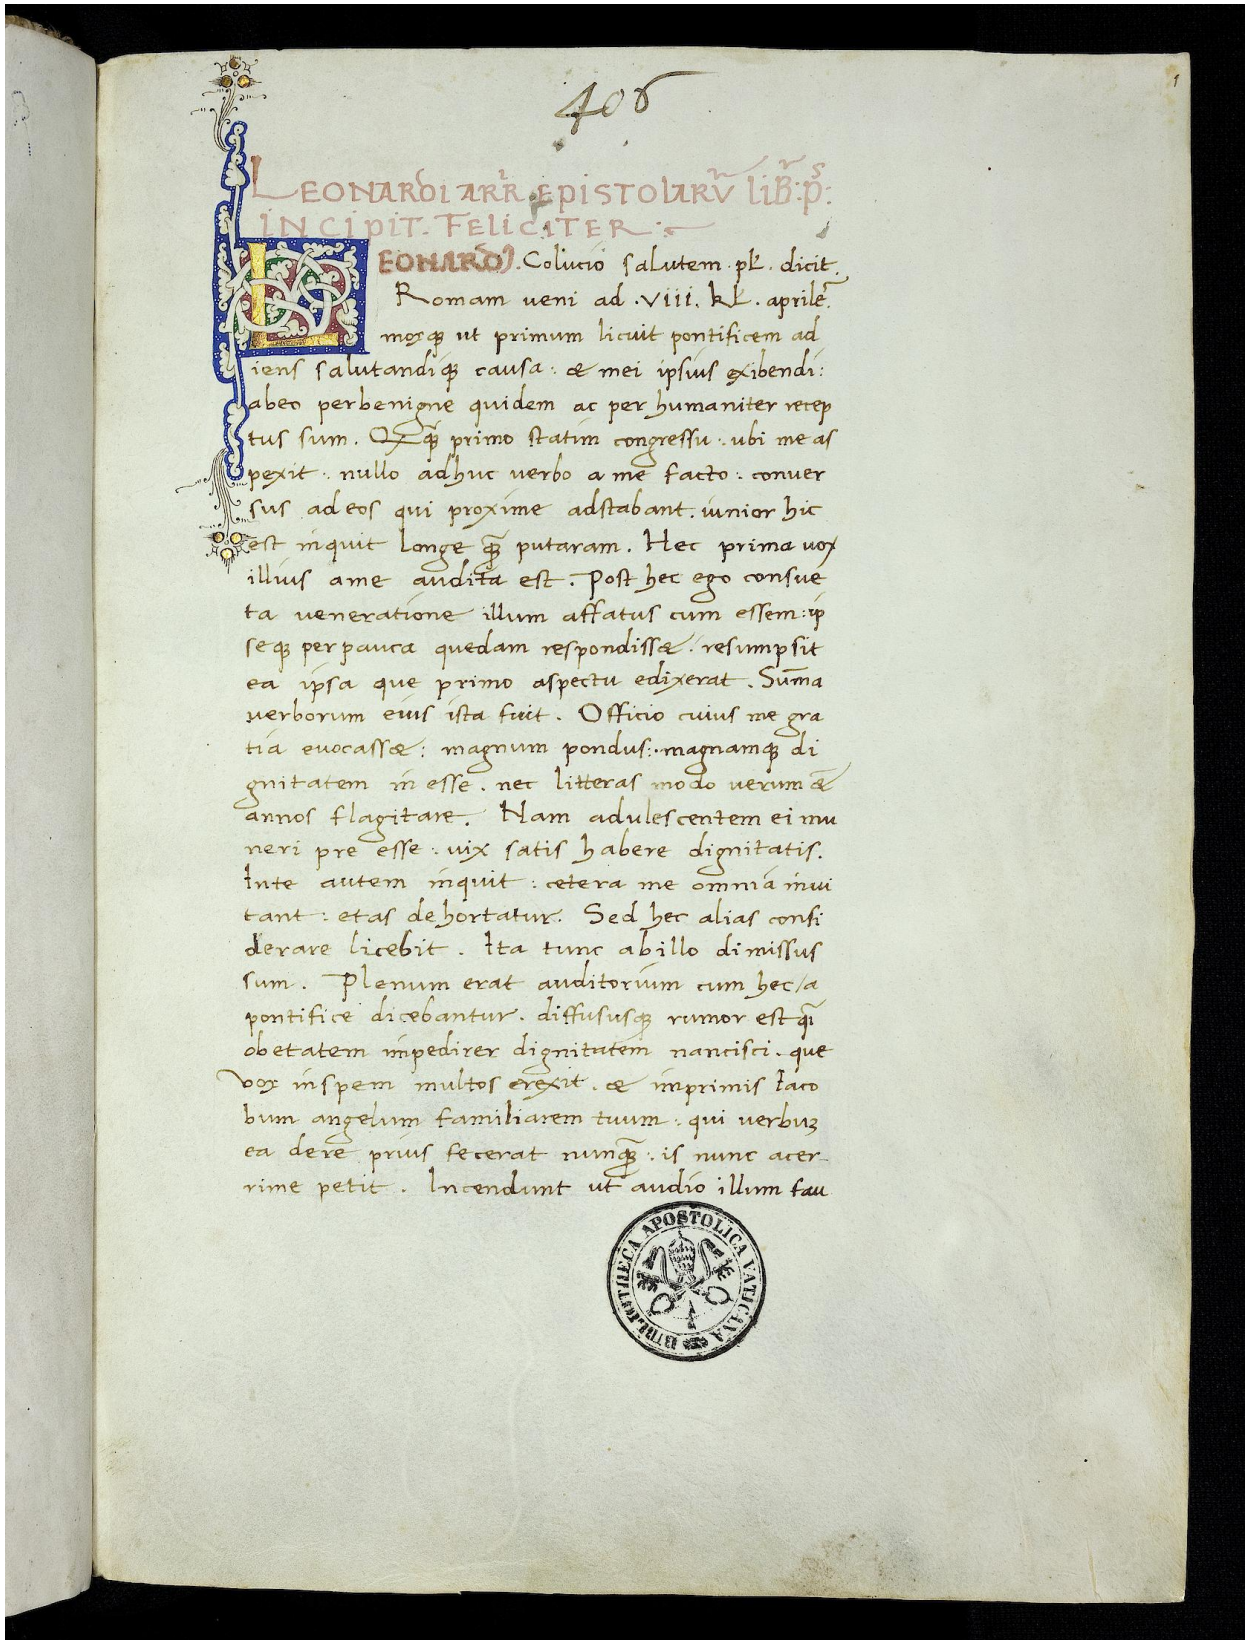 406
1
LEONARDI ARR̄. EPISTOLARŪ LIBR̄: P̄S:
INCIPIT. FELICITER :
LEONARDꝰ. Colucio salutem. pł. dicit.
Romam veni ad .viii. kł. aprilē.
moxqꝫ ut primum licuit pontificem ad
iens salutandiqꝫ causa: & mei ipsius exibendi:
abeo perbenigne quidem ac per humaniter recep
tus sum. primo statim congressu: ubi me as
pexit: nullo adhuc verbo a me facto: conuer
sus ad eos qui proxime adstabant. iunior hic
est inquit longe qꝫ̄ putaram. Hec prima uox
illius a me audita est. Post hec ego consue
ta veneratione illum affatus cum essem: ip
seqꝫ perpauca quedam respondiss&: resumpsit
ea ipsa que primo aspectu edixerat. Sum̄a
verborum eius ista fuit. Officio cuius me gra
tia euocass&: magnum pondus: magnamqꝫ di
gnitatem in esse. nec litteras modo verum &̄
annos flagitare. Nam adulescentem ei mu
neri pre esse: uix satis habere dignitatis.
Inte autem inquit: cetera me omnia inui
tant: etas dehortatur. Sed hec alias consi
derare licebit. Ita tunc ab illo dimissus
sum. Plenum erat auditorium cum hec/a
pontifice dicebantur. diffususqꝫ rumor est
ob etatem impedirer dignitatem nancisci. que
vox inspem multos erexit. & imprimis Iaco
bum angelum familiarem tuum: qui verbuꝫ
ea dere prius fecerat nunqꝫ̄: is nunc acer-
rime petit. Incendunt ut audio illum fau
BIBLIOTHECA APOSTOLICA VATICANA